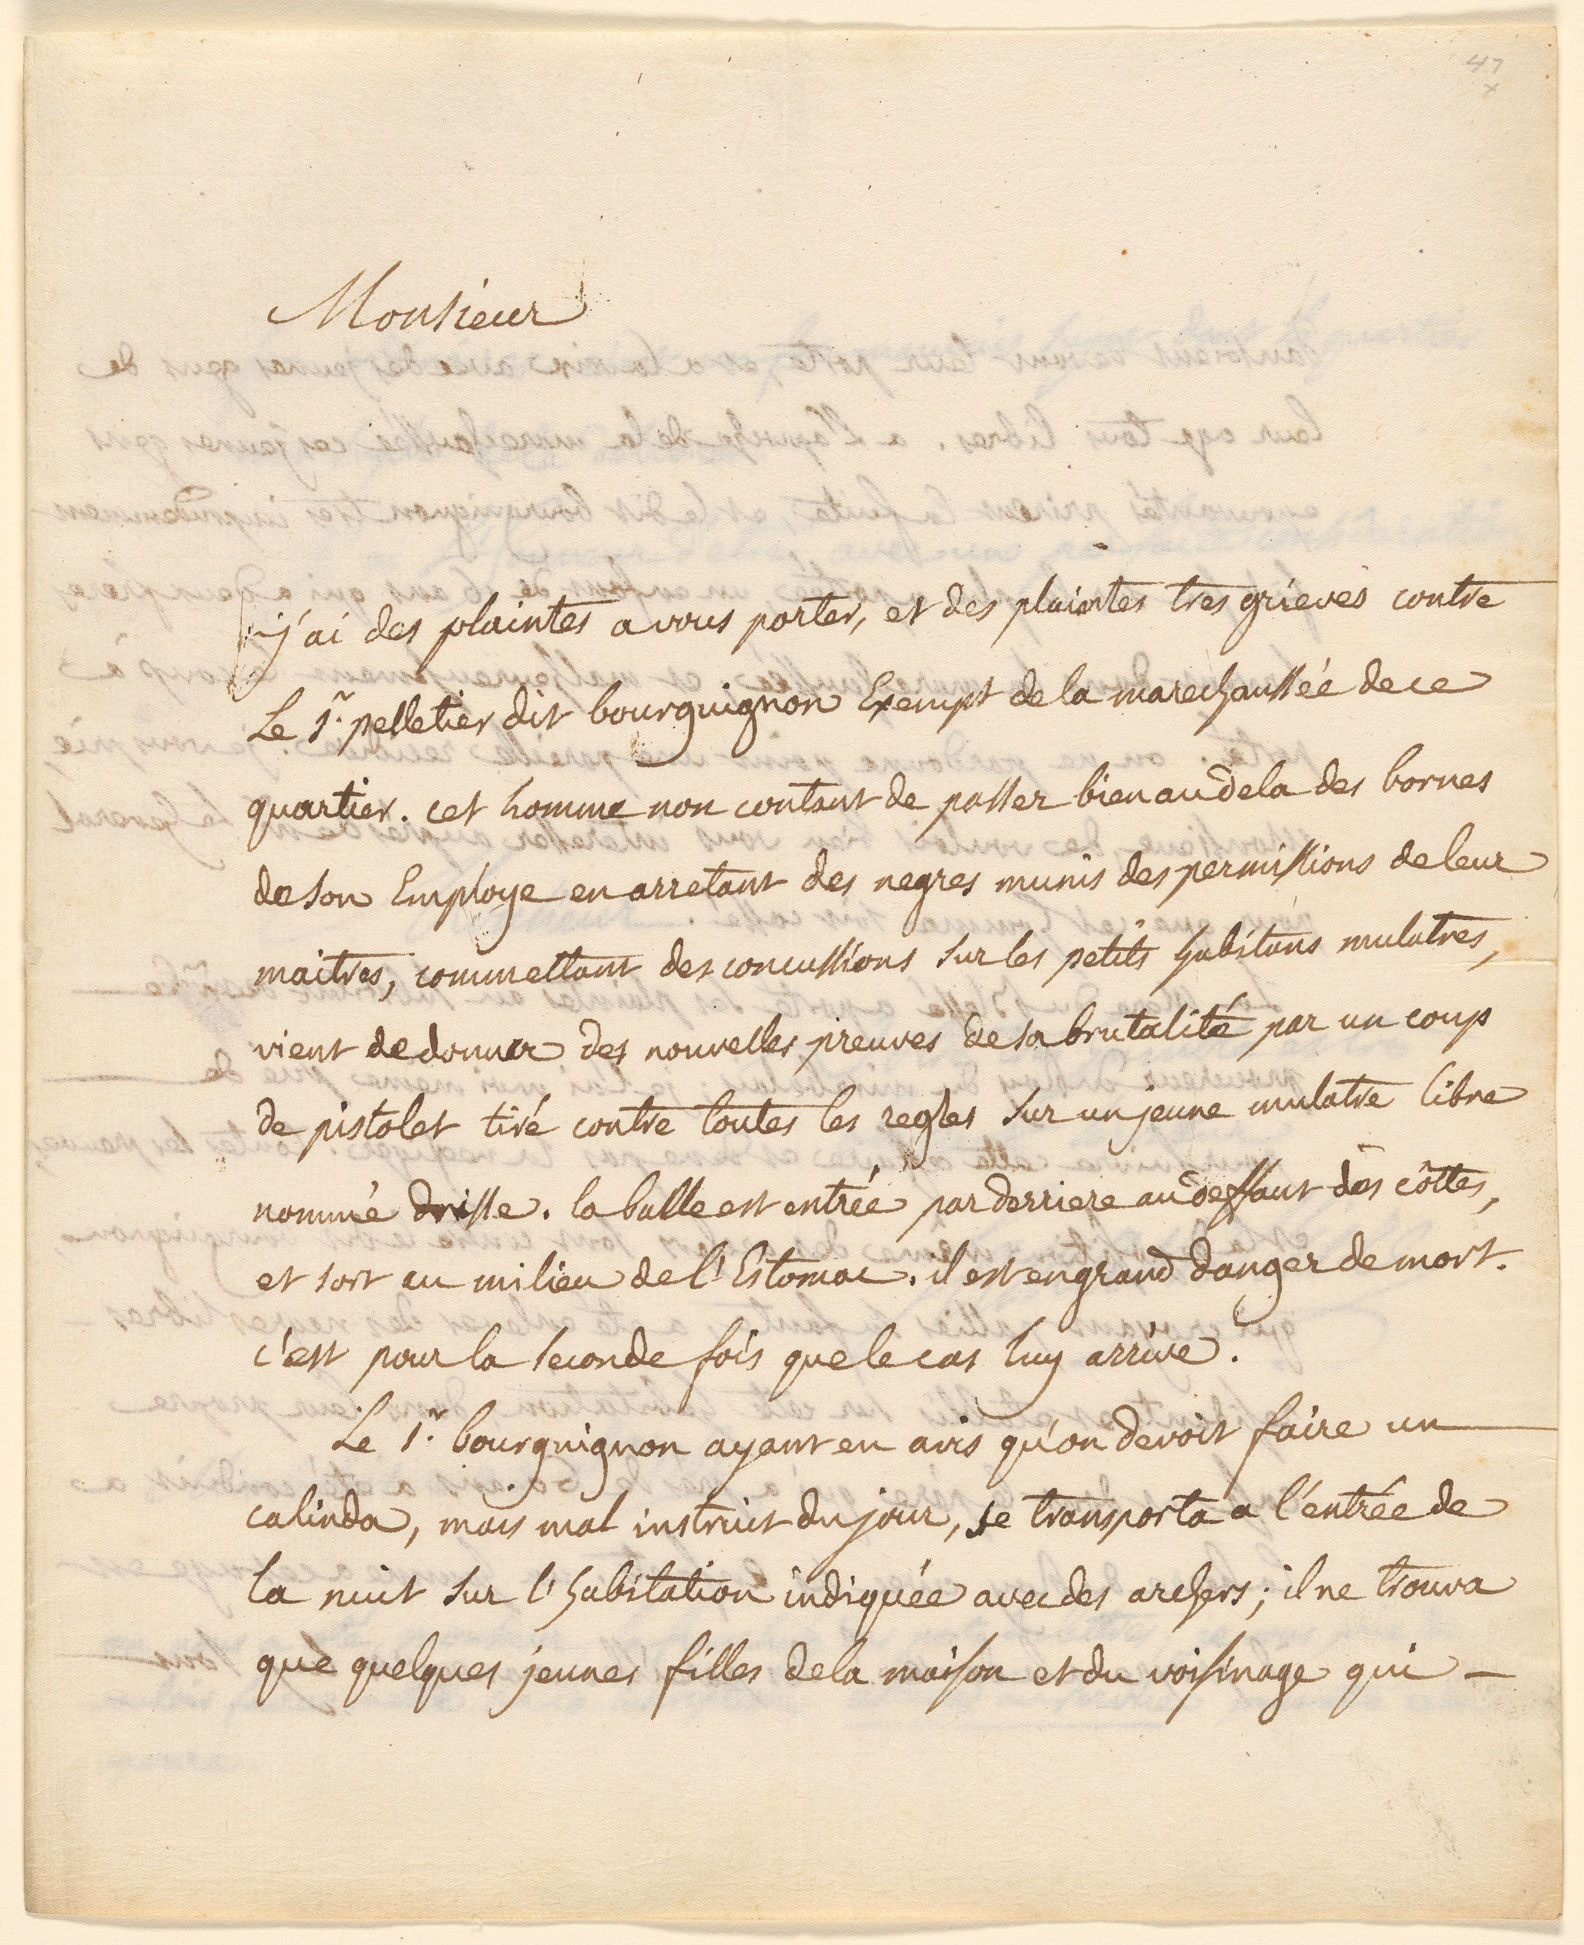 47
x
Monsieur
j'ai des plaintes a vous porter, et des plaintes tres grieves contre
Le Sr. pelletier dit bourguignon Exempt de la marechaussée de ce
quartier. cet homme non content de passer bien au dela des bornes
de son Employe en arretant des negres munis des permissions de leur
maitres, commettant des concussions sur les petits habitans mulatres,
vient de donner des nouvelles preuves de sa brutalité par un coup
de pistolet tiré contre toutes les regles sur un jeune mulatre libre
nommé drisse. la balle est entrée par derriere au deffaut des côttes,
et sort au milieu de l'Estomac. il est en grand danger de mort.
c'est pour la seconde fois que le cas luy arrive.
Le Sr. bourguignon ayant eu avis qu'on devoit faire un
calinda, mais mal instruit du jour, se transporta a l'entrée de
la nuit sur l'habitation indiquée avec des archers; il ne trouva
que quelques jeunes filles de la maison et du voisinage qui —